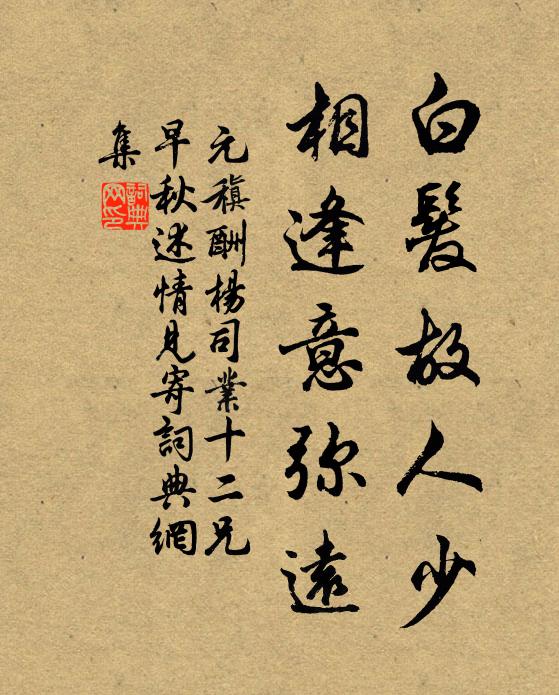 白髮故人少
相逢意弥遠
元稹酬楊司業十二兄
早秋述情見寄詞典網
集
詞典
网印